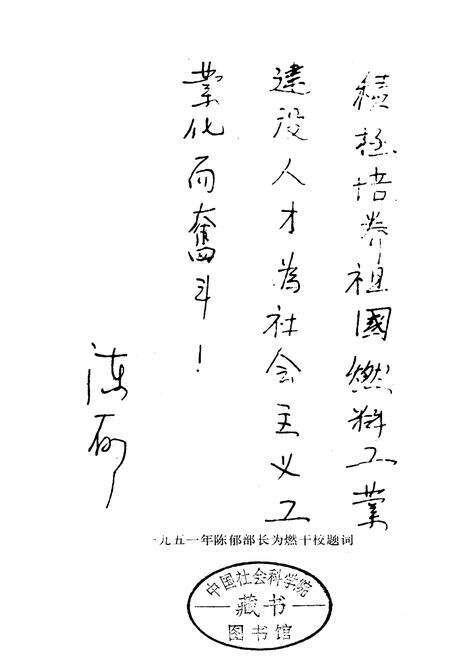 積极培养祖國燃料工業
建设人才為社会主义工
業化而奮斗！
陈郁
一九五一年陈郁部长为燃干校题词
中国社会科学院
藏书
图书馆